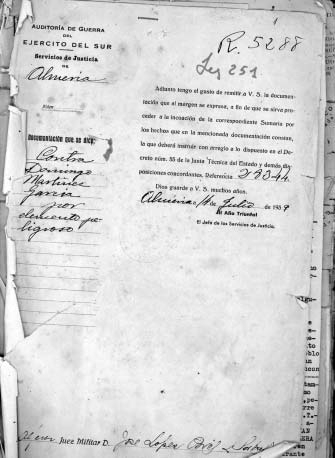 AUDITORÍA DE GUERRA
DEL
EJERCITO DEL SUR
Servicios de Justicia
DE
Almería
Núm.
Documentación que se cita:
Contra
Domingo
Martínez
García
por
elemento pe
ligroso
R. 5288
Leg 251
Adjunto tengo el gusto de remitir a V. S. la documen-
tación que al margen se expresa, a fin de que se sirva
proceder a la incoación de la correspondiente Sumaria por
los hechos que en la mencionada documentación constan,
la que deberá instruir con arreglo a lo dispuesto en el De-
creto núm. 55 de la Junta Técnica del Estado y demás dis-
posiciones concordantes. Referencia
Dios guarde a V. S. muchos años.
Almería de Julio de 1939
III Año Triunfal
El Jefe de los Servicios de Justicia.
Juez Militar D. José López